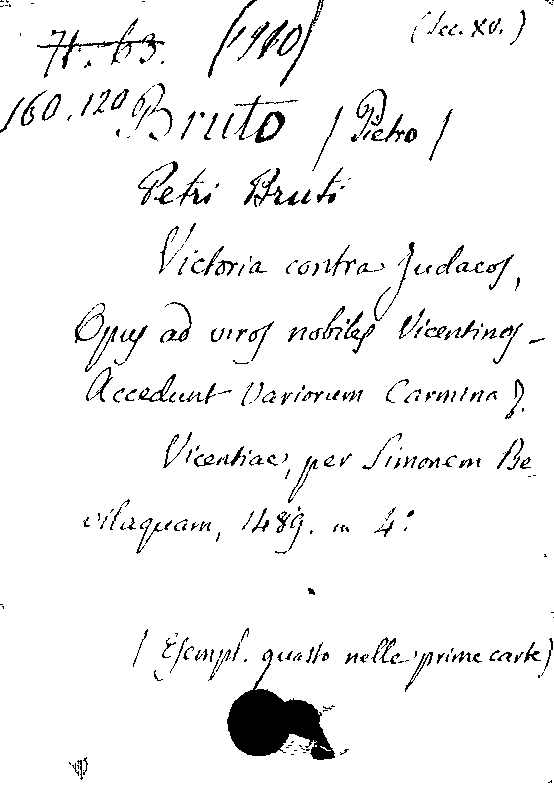 71. 63. (1910) (Sec. XV.)
160.120 Bruto (Pietro)
Petri Bruti
Victoria contra Judaeos,
Opus ad viros nobiles Vicentinos -
Accedunt Variorum Carmina.
Vicentiae, per Simonem Be-
vilaquam, 1489. in 4:
(Esempl. guasto nelle prime carte)